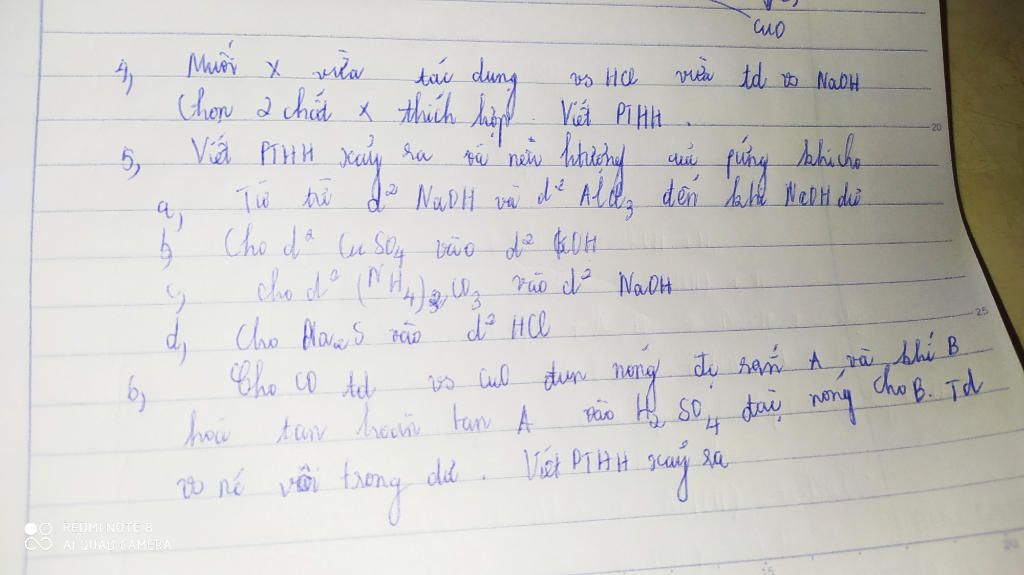 CuO
4, Muối X vừa tác dụng vs HCl vừa td vs NaOH
Chọn 2 chất X thích hợp. Viết PTHH.
20
5, Viết PTHH xảy ra và nêu htượng của pứng khi cho
a, Từ từ d² NaOH và d² AlCl₃ đến khi NaOH dư
b, Cho d² CuSO₄ vào d² KOH
c, cho d² (NH₄)₂CO₃ vào d² NaOH
25
d, Cho Na₂S vào d² HCl
6, Cho CO td vs CuO đun nóng đc rắn A và khí B
hoà tan hoàn tan A vào H₂SO₄ đặc nóng cho B. Td
vs nc vôi trong dư. Viết PTHH xảy ra
REDMI NOTE 8
AI QUAD CAMERA
15
20